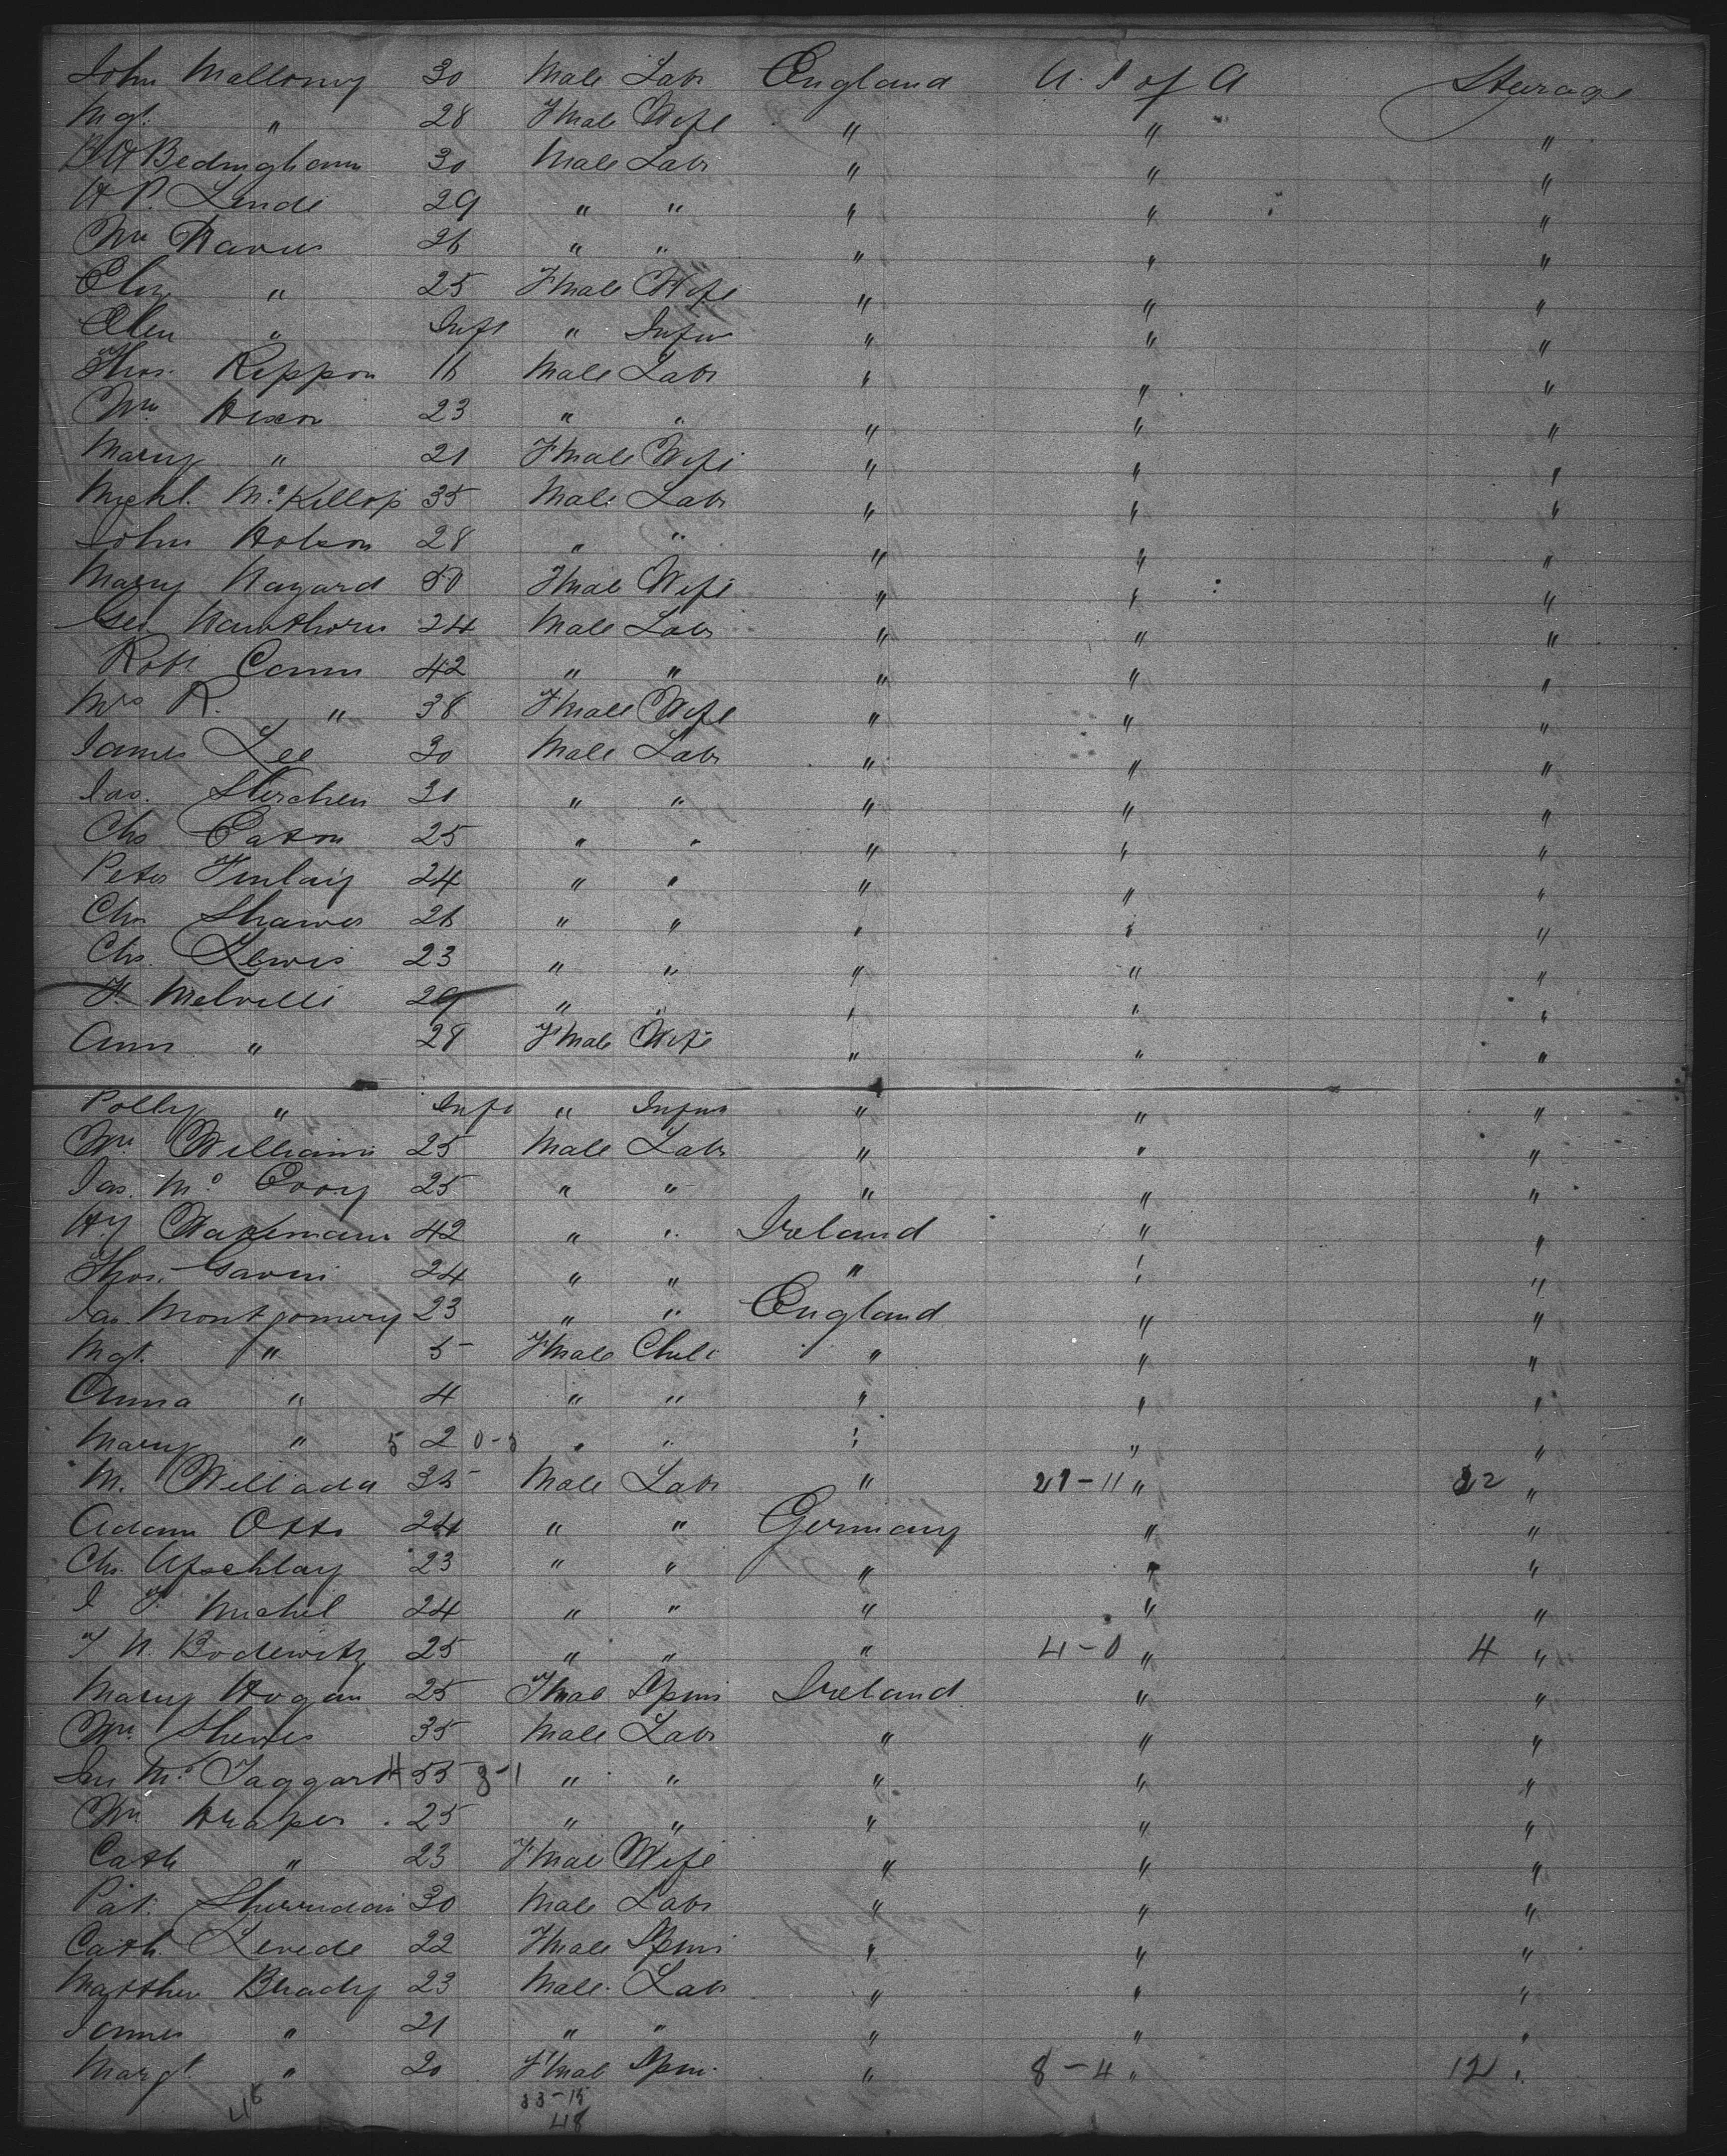 John Mallony 30 Male Labr England U. S of A Sterage
Mgt. " 28 Fmale Wife " " "
Bedingham 30 Male Labr " " "
H P. Linde 29 " " " " "
Wm 26 " " " " "
Eliz " 25 Fmale Wife " " "
Ellen " Inft " Infnt " " "
Thos. Rippon 16 Male Labr " " "
Wm Hixon 23 " " " " "
Mary " 21 Fmale Wife " " "
Michl. Mc Killop 35 Male Labr " " "
John Hobson 28 " " " " "
Mary 50 Fmale Wife " " "
Geo Hawthorn 24 Male Labr " " "
Robt 42 " " " " "
Mrs R. " 38 Fmale Wife " " "
James Lee 30 Male Labr " " "
Jas. " " " " "
Chs Eaton 25 " " " " "
Peter Finlay 24 " " " " "
Chs 26 " " " " "
Chs. Lewis 23 " " " " "
F. Melville 29 " " " " "
Ann " 28 Fmale Wife " " "
Polly " Inft " Infnt " " "
Wm. Williams 25 Male Labr " " "
Jas. Mc Evoy 25 " " " " "
Hy Wakeman 42 " " Ireland " "
Thos. Gavin 24 " " " " "
Jas. Montgomery 23 " " England " "
Mgt. " 5 Fmale Chil " " "
Anna " 4 " " " " "
Mary " 5 2 0-5 " " " " "
M. 35 Male Labr " 21-11 " 32 "
Adam Otto 24 " " Germany " "
Chs. 23 " " " " "
J F. Michel 24 " " " " "
Bodewitz 25 " " " 4-0 " 4 "
Mary Hogan 25 Fmale Spin Ireland " "
Wm. 35 Male Labr " " "
Jno Mc Taggart 4 55 3-1 " " " " "
Wm Draper 25 " " " " "
Cath " 23 Fmale Wife " " "
Pat. Sherridan 30 Male Labr " " "
Cath. 22 Fmale Spin " " "
Matthew Brady 23 Male Labr " " "
James " 21 " " " " "
Margt " 20 Fmale Spin " 8-4 " 12 "
48 33-15
48